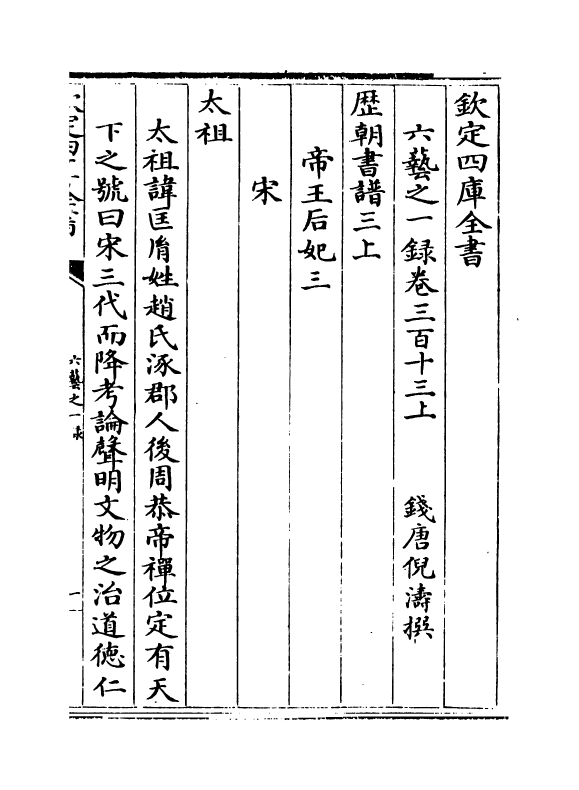 欽定四庫全書
六藝之一録卷三百十三上
錢唐倪濤撰
歷朝書譜三上
帝王后妃三
宋
太祖
太祖諱匡胤姓趙氏涿郡人後周恭帝禪位定有天
下之號曰宋三代而降考論聲明文物之治道德仁
六藝之一录
一